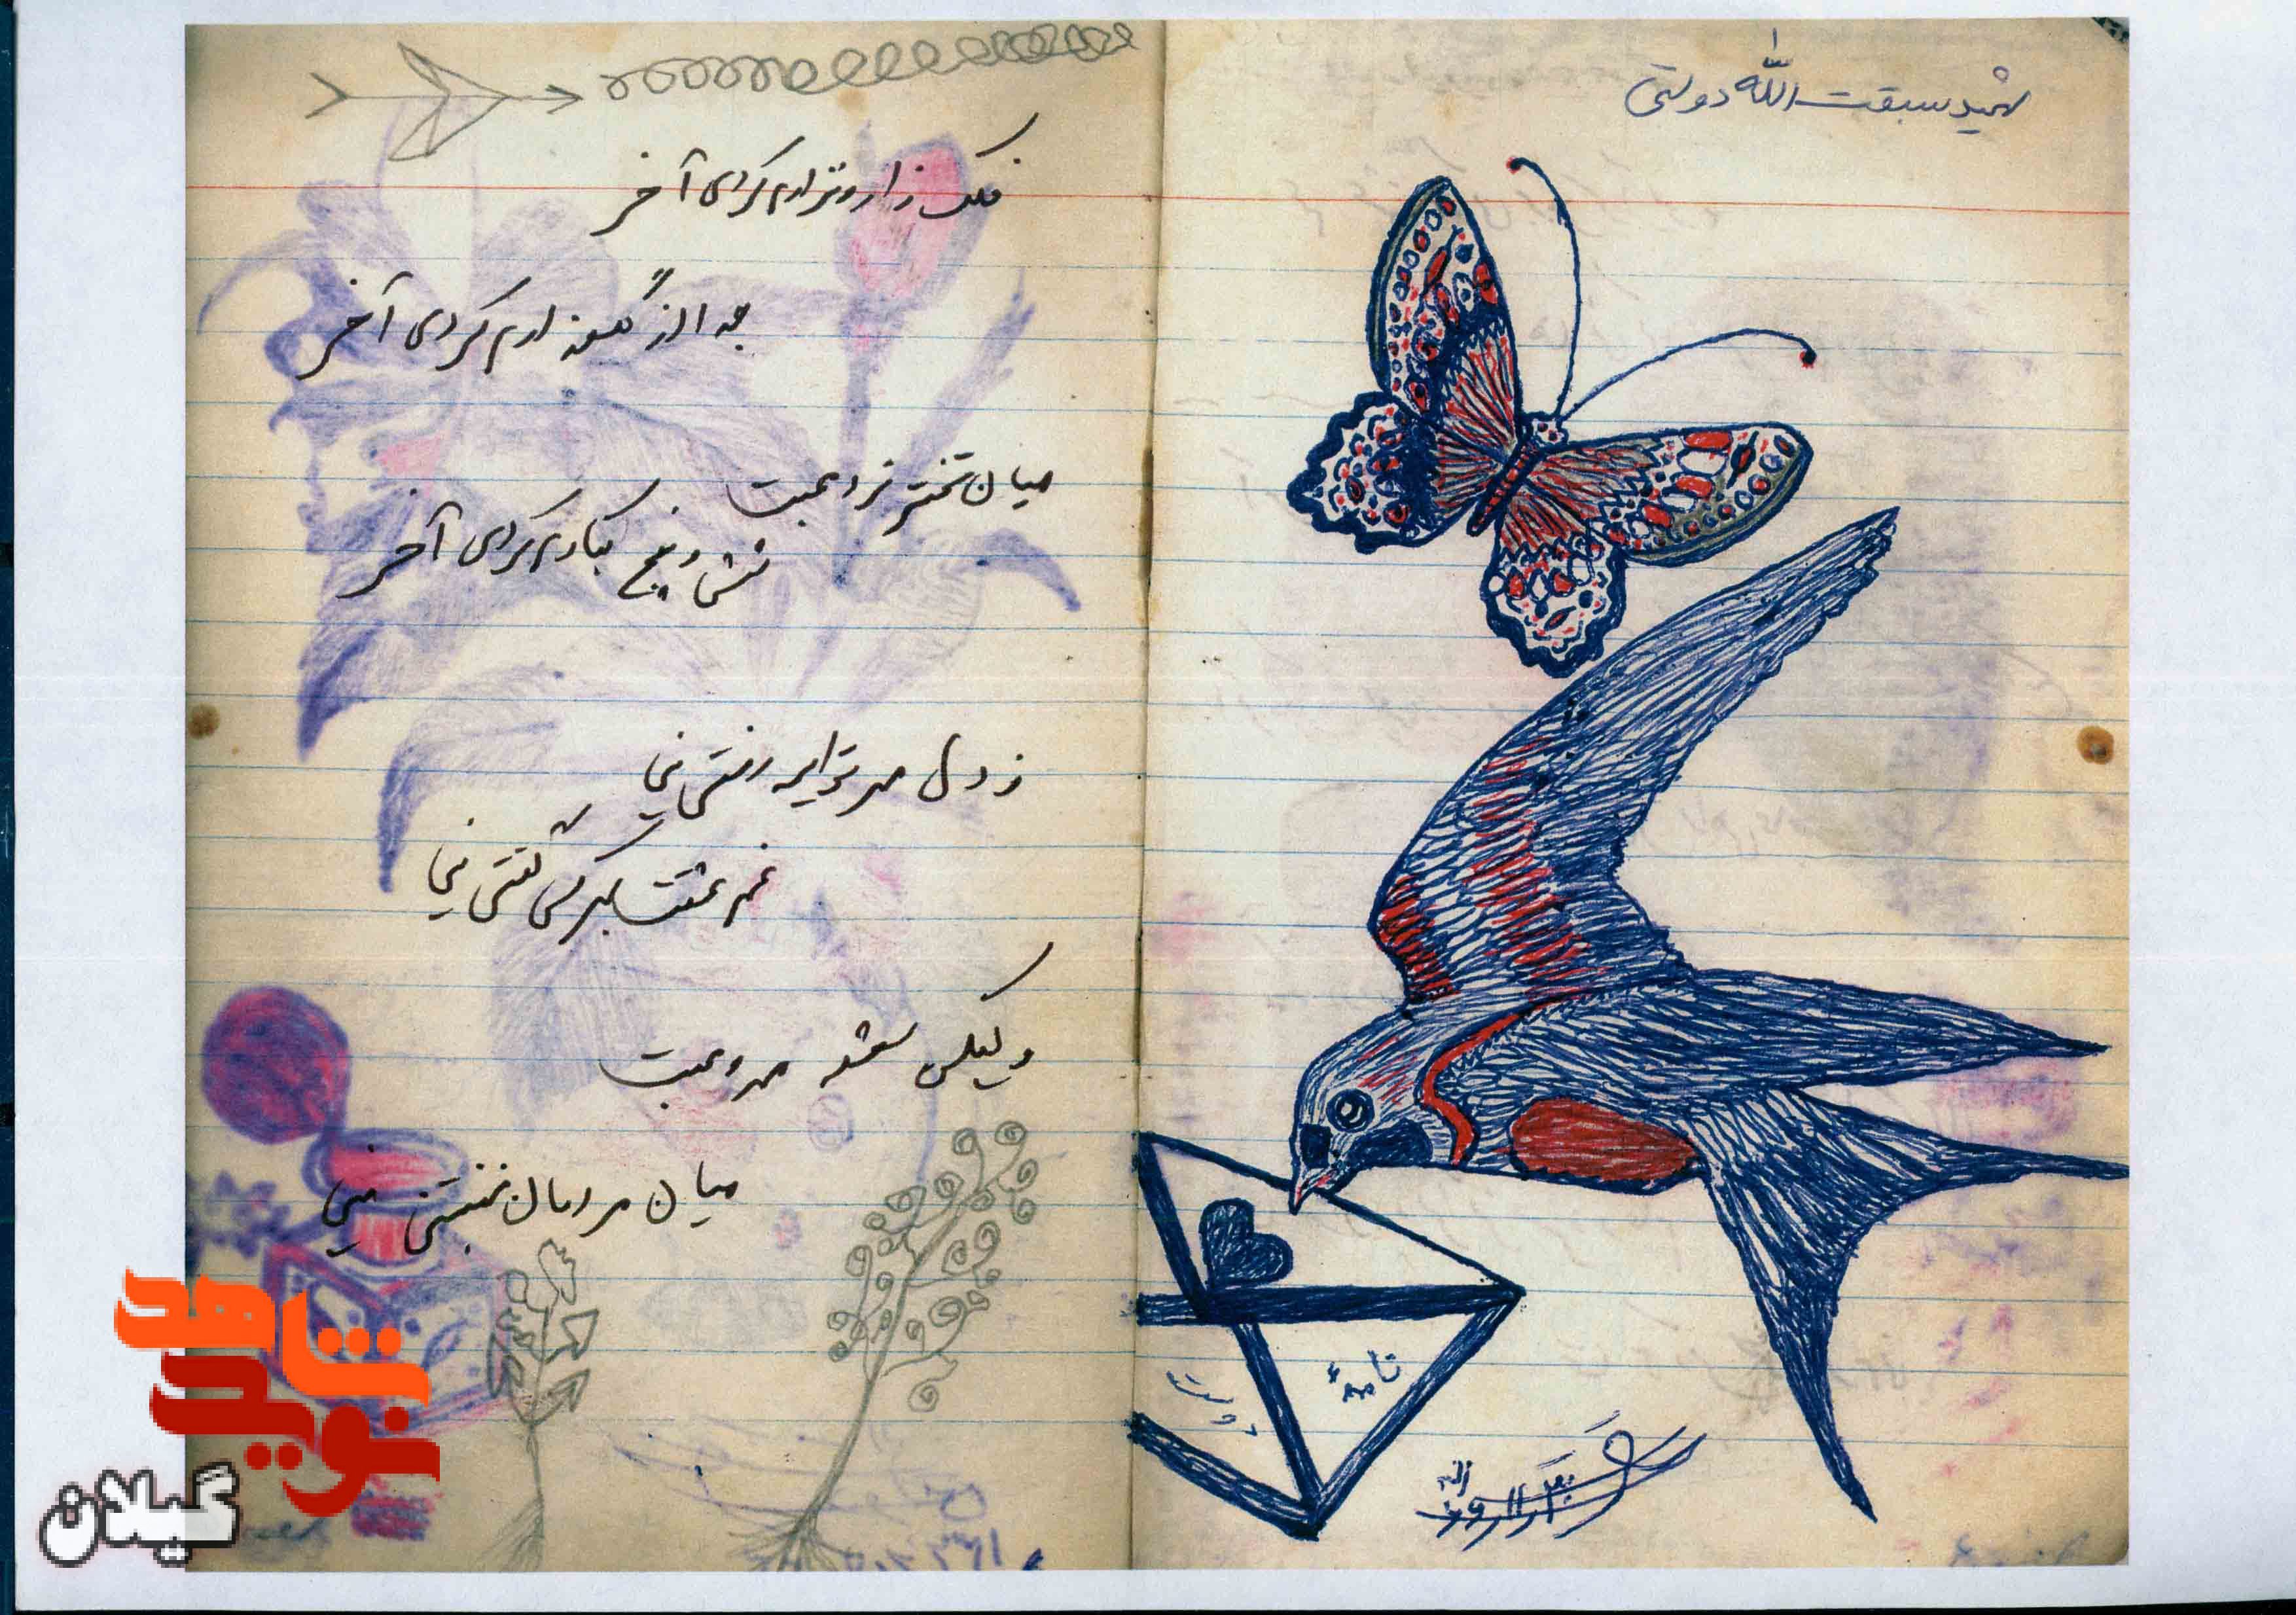 شهید سبقت الله دولتی
فلک زار و نزارم کردی آخر
جدا از گلعذارم کردی آخر
میان تخته نرد محبت
شش و پنج بکارم کردی آخر
ز دل مهر تو ای مه رفتنی نی
غم عشقت بهر کس گفتنی نی
ولیکن شعله مهر و محبت
میان مردمان بنهفتنی نی
نامهٔ
دوست
شاهد
نوید
گیلان